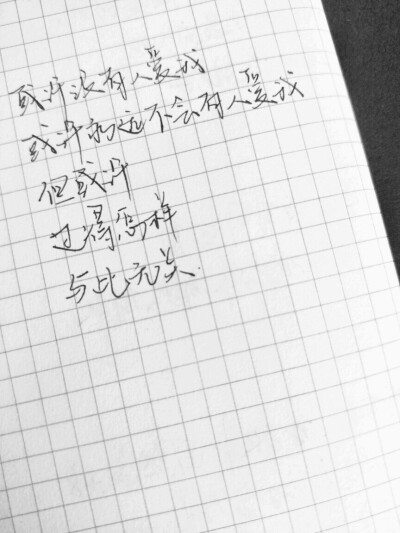 或许没有人爱我
或许永远不会有人爱我
但或许
过得怎样
与此无关